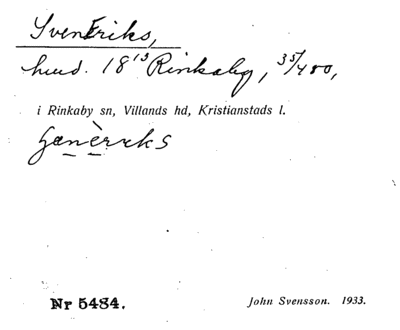 SvenEriks,
hmd. 18¹³ Rinkaby, 35/400,
i Rinkaby sn, Villands hd, Kristianstads l.
Nr 5484.
John Svensson. 1933.